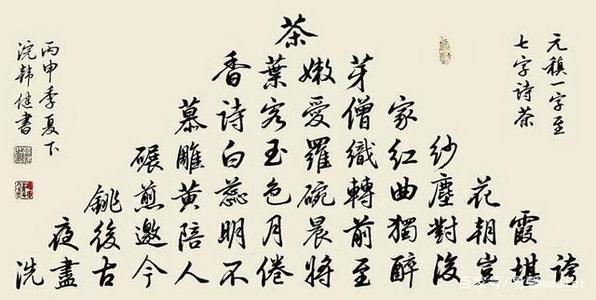 元稹一字至
七字詩茶
茶
香葉嫩芽
慕詩客愛僧家
碾雕白玉羅織紅紗
銚煎黃蕊色碗轉曲塵花
夜後邀陪明月晨前獨對朝霞
洗盡古今人不倦將至醉後豈堪誇
丙申季夏下
浣韓健書